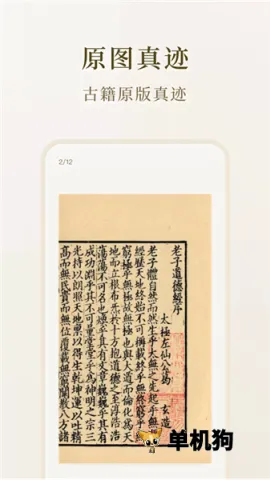 原图真迹
古籍原版真迹
2/12
老子道德經序
太極左仙公葛 玄造
老子體自然而然生乎太無之先起乎無
經歷天地終始不可稱載終乎無終窮乎無
窮極乎無極故無極也與大道而倫化爲天
地而立根布炁於十方抱道德之至淳浩浩
蕩蕩不可名也煥乎其有文章巍巍乎其有
成功淵乎其不可量堂堂乎爲神明之宗三
光持以朗照天地稟以得生乾坤運以吐精
高而無民貴而無位覆載無窮闡教八方諸
单机狗